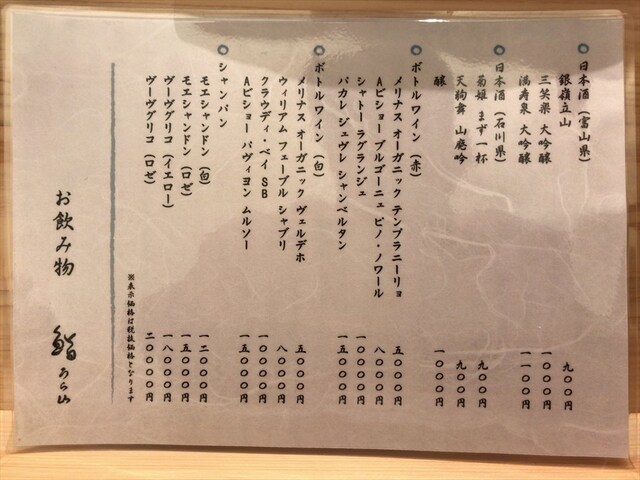 ○ 日本酒（富山県）
銀嶺立山 九〇〇円
三笑楽 大吟醸 一〇〇〇円
満寿泉 大吟醸 一一〇〇円
○ 日本酒（石川県）
菊姫 まず一杯 九〇〇円
天狗舞 山廃吟醸 九〇〇円
一〇〇〇円
○ ボトルワイン（赤）
メリナス オーガニック テンプラニーリョ 五〇〇〇円
Aビショー ブルゴーニュ ピノ・ノワール 八〇〇〇円
シャトー ラグランジュ 一〇〇〇〇円
パカレ ジュヴレ シャンベルタン 一五〇〇〇円
○ ボトルワイン（白）
メリナス オーガニック ヴェルデホ 五〇〇〇円
ウィリアム フェーブル シャブリ 八〇〇〇円
クラウディ・ベイ SB 一〇〇〇〇円
Aビショー パヴィヨン ムルソー 一五〇〇〇円
○ シャンパン
モエシャンドン（白） 一二〇〇〇円
モエシャンドン（ロゼ） 一五〇〇〇円
ヴーヴグリコ（イエロー） 一八〇〇〇円
ヴーヴグリコ（ロゼ） 二〇〇〇〇円
※表示価格は税抜価格となります
お飲み物 鮨 あら山